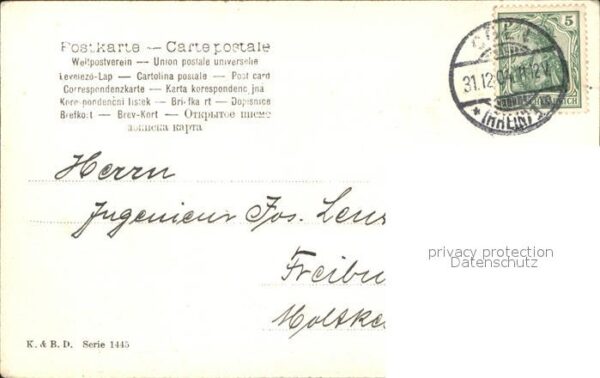 Postkarte — Carte postale
Weltpostverein — Union postale universelle
Levelező-Lap — Cartolina postale — Post card
Correspondenzkarte — Karta korespondencyjna
Korespondenční lístek — Briefkaart — Dopisnice
Brefkort — Brev-Kort — Открытое письмо
5
31.12.04.11-12V
(RHEIN)
Herrn
Ingenieur Jos. Lenz
Freibu
Moltke
privacy protection
Datenschutz
K. & B. D. Serie 1445